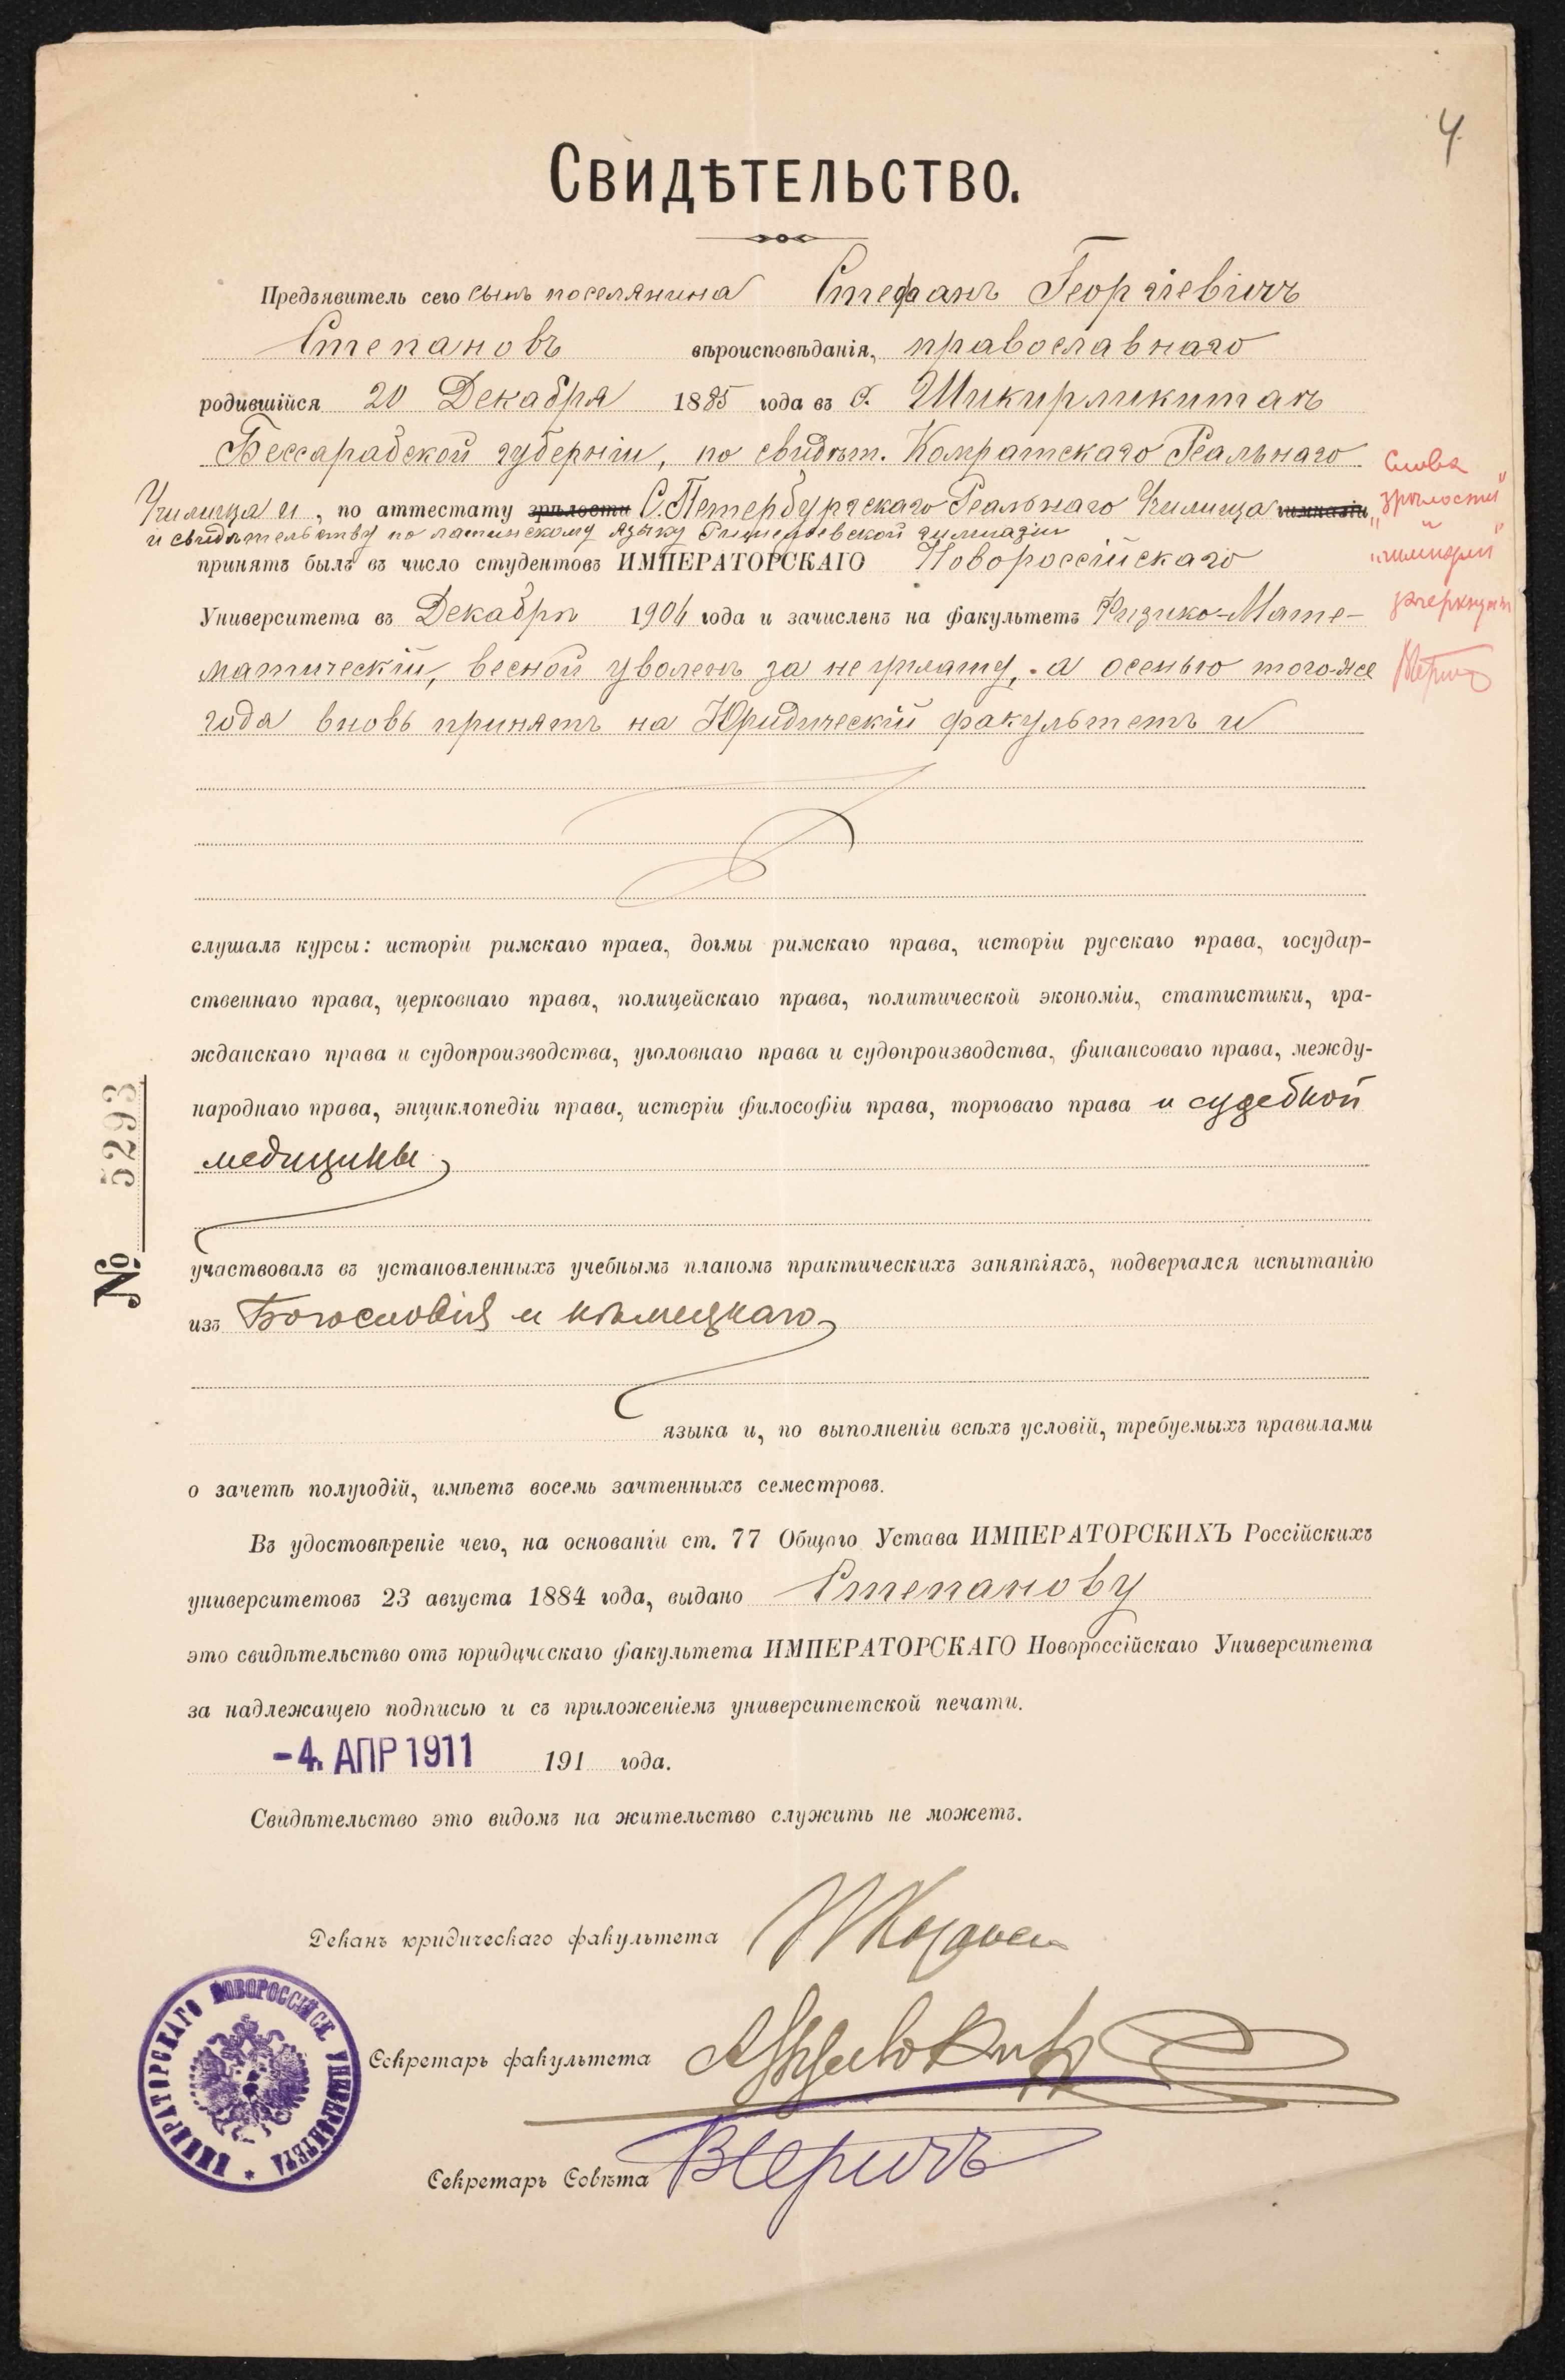 4.
Свидѣтельство.
Предъявитель сего сынъ поселянина Стефанъ Георгіевичъ
Степановъ вѣроисповѣданія, православнаго
родившійся 20 Декабря 1885 года въ с. Шикирликитаѣ
Бессарабской губерніи, по свидѣт. Комратскаго Реальнаго
Училища и, по аттестату зрѣлости С.Петербургскаго Реальнаго Училища гимназіи
и свидѣтельству по латинскому языку Ришельевской гимназіи
принятъ былъ въ число студентовъ ИМПЕРАТОРСКАГО Новороссійскаго
Университета въ Декабрѣ 1906 года и зачисленъ на факультетъ Физико-Мате-
матическій, весной уволенъ за неуплату, а осенью того-же
года вновь принятъ на Юридическій факультетъ и
Слова
„зрѣлости"
и
„гимназіи"
зачеркнуты
слушалъ курсы: исторіи римскаго права, догмы римскаго права, исторіи русскаго права, государ-
ственнаго права, церковнаго права, полицейскаго права, политической экономіи, статистики, гра-
жданскаго права и судопроизводства, уголовнаго права и судопроизводства, финансоваго права, между-
народнаго права, энциклопедіи права, исторіи философіи права, торговаго права и судебной
медицины
№ 5293
участвовалъ въ установленныхъ учебнымъ планомъ практическихъ занятіяхъ, подвергался испытанію
изъ Богословія и нѣмецкаго
языка и, по выполненіи всѣхъ условій, требуемыхъ правилами
о зачетѣ полугодій, имѣетъ восемь зачтенныхъ семестровъ.
Въ удостовѣреніе чего, на основаніи ст. 77 Общаго Устава ИМПЕРАТОРСКИХЪ Россійскихъ
университетовъ 23 августа 1884 года, выдано Степанову
это свидѣтельство отъ юридическаго факультета ИМПЕРАТОРСКАГО Новороссійскаго Университета
за надлежащею подписью и съ приложеніемъ университетской печати.
-4. АПР 1911 191 года.
Свидѣтельство это видомъ на жительство служить не можетъ.
Деканъ юридическаго факультета
Секретарь факультета
Секретарь Совѣта
ИМПЕРАТОРСКАГО НОВОРОССІЙСК. УНИВЕРСИТЕТА *